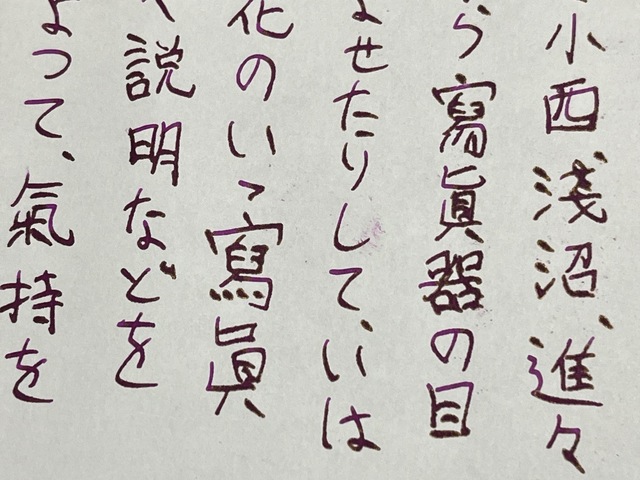 小西、淺沼、進々
ら寫眞器の目
よせたりして、いは
花のいゝ寫眞
説明などを
よつて、氣持を